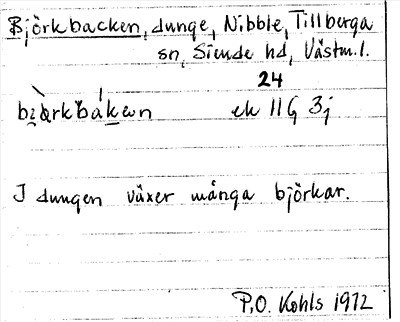 Björkbacken, dunge, Nibble, Tillberga
sn, Siende hd, Västm.l.
24
ek 11G 3j
I dungen växer många björkar.
P.O. Kohls 1972